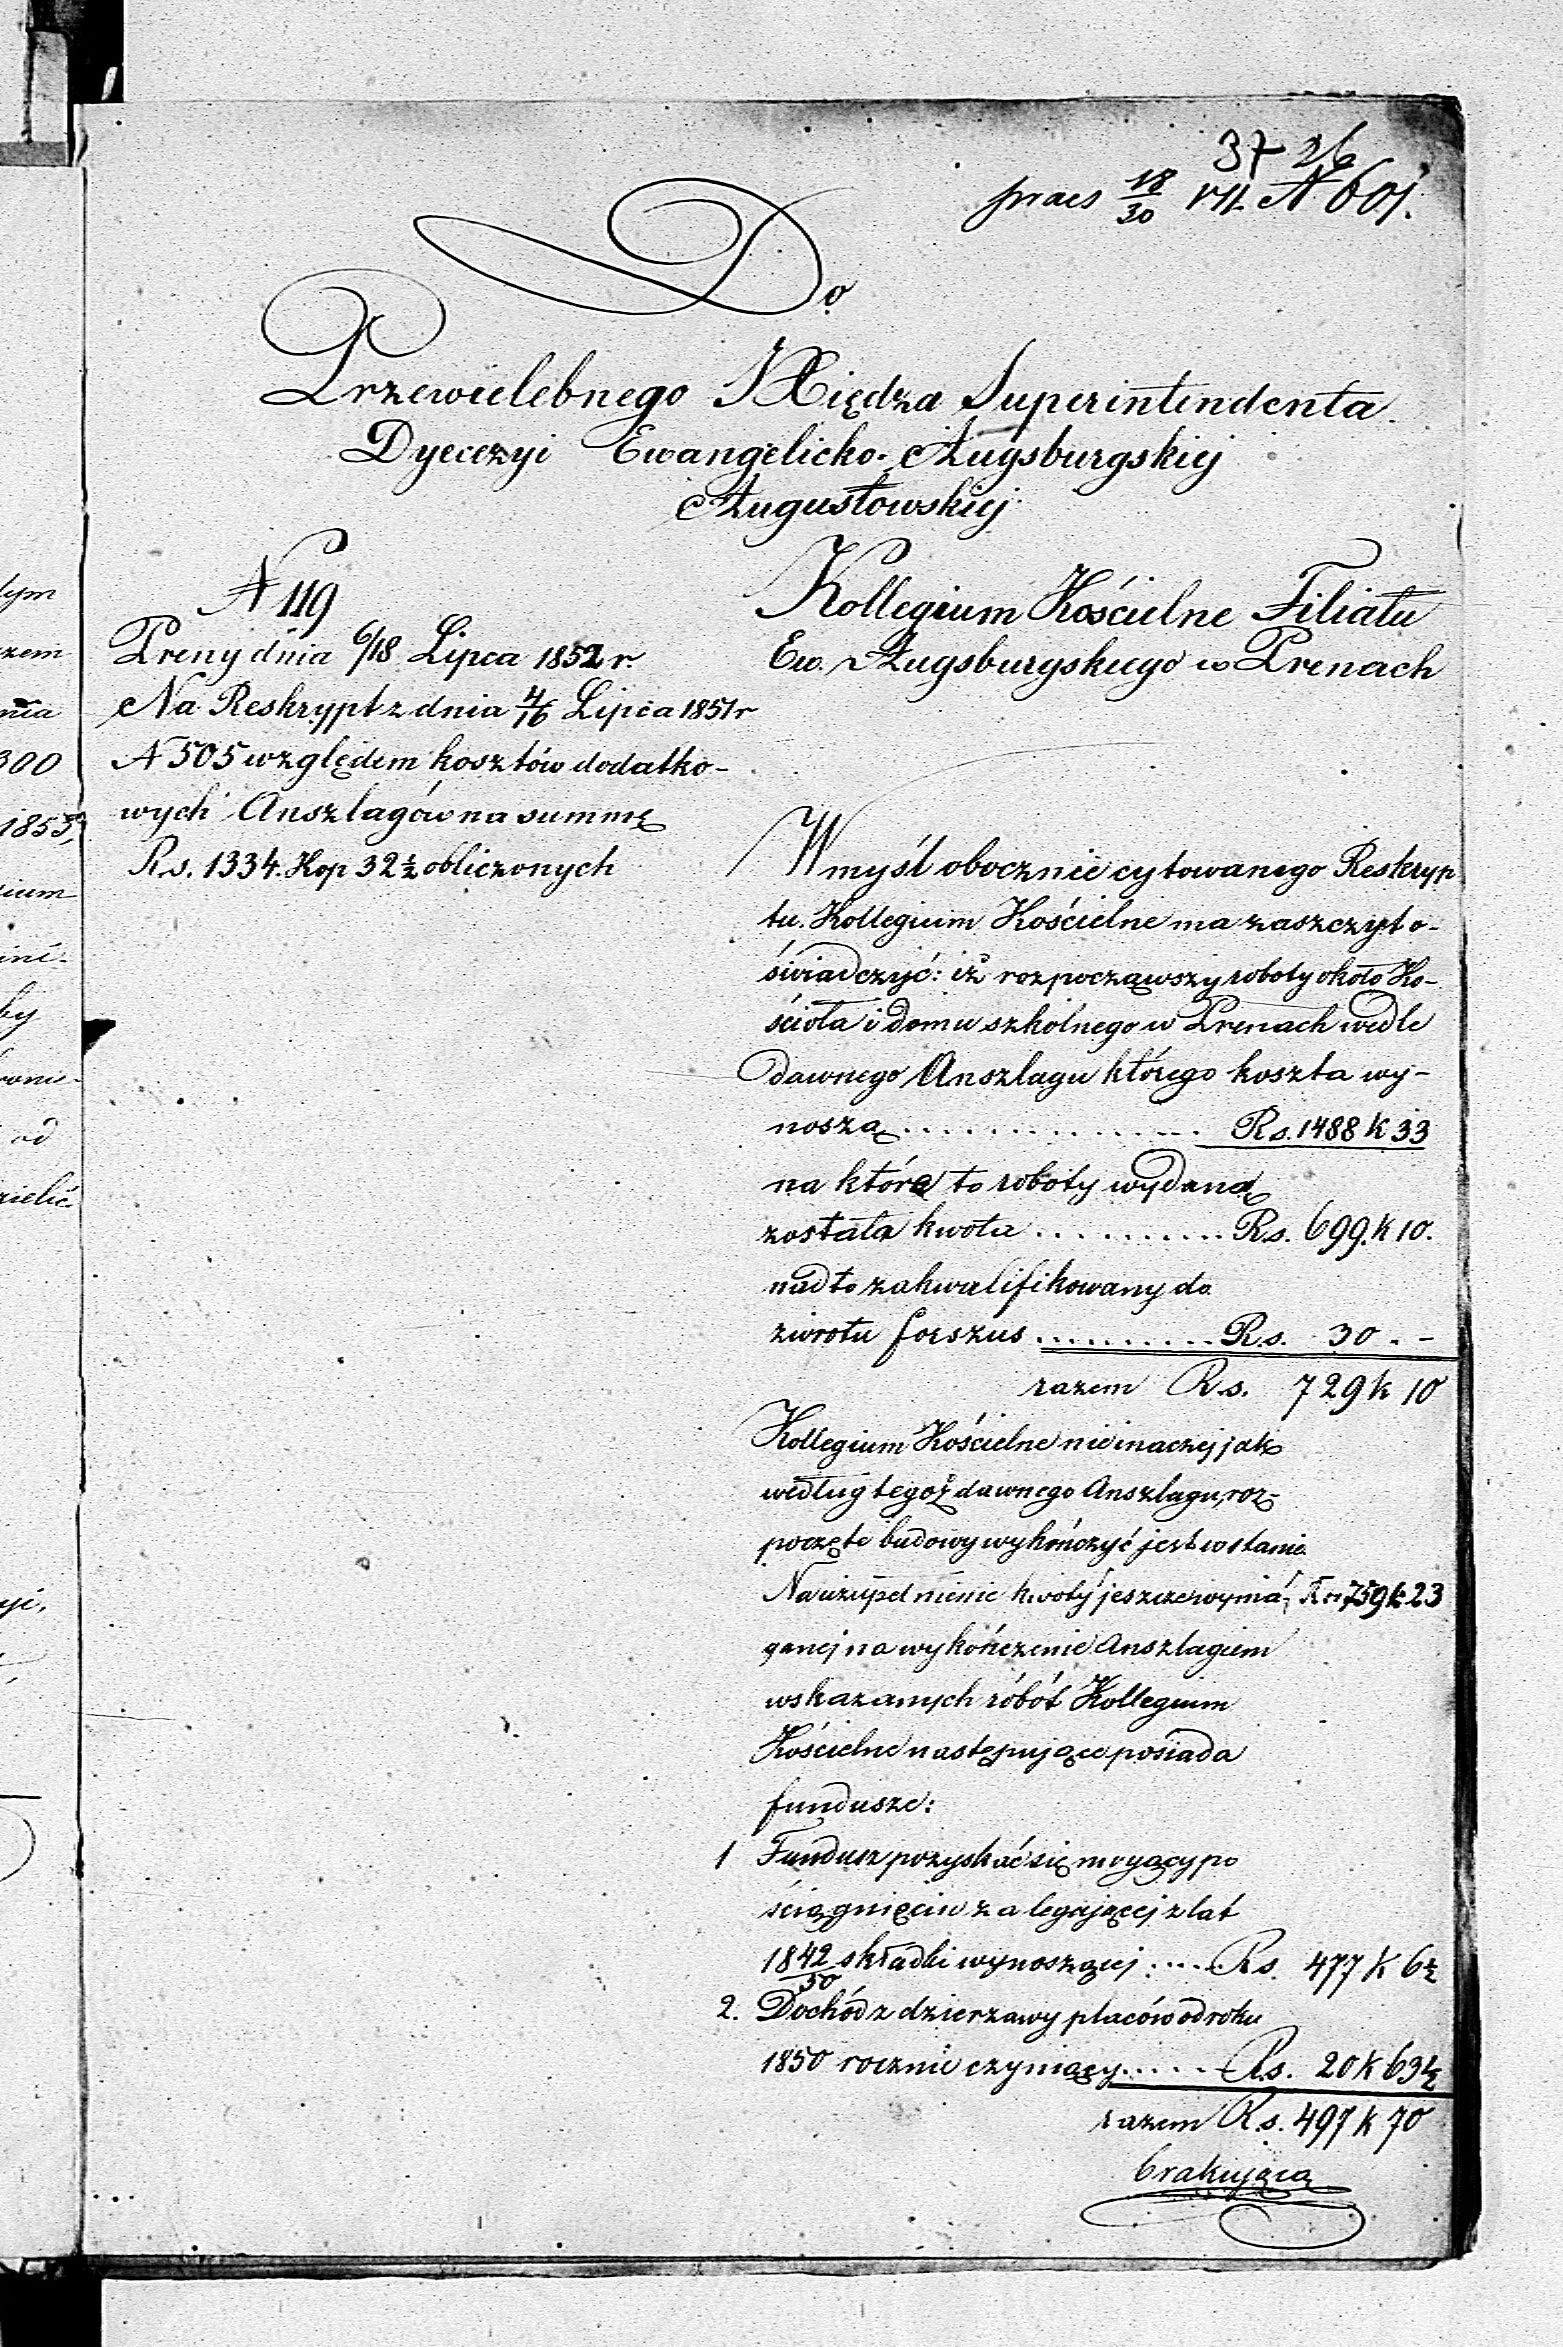 37 26
praes 18/30 VII. N 601.
Do
Przewielebnego Xiędza Superintendenta
Dyecezyi Ewangelicko-Augsburgskiej
Augustowskiej
N 119
Preny dnia 6/18 Lipca 1852 r.
Na Reskrypt z dnia 4/16 Lipca 1851 r
N 505 względem kosztów dodatko-
wych Anszlagów na summę
Rs. 1334. Kop 32 ½ obliczonych
Kollegium Kościelne Filiału
Ew. Augsburgskiego w Prenach
W myśl obocznie cytowanego Reskryp
tu. Kollegium Kościelne ma zaszczyt o-
świadczyć: iż rozpocząwszy roboty około Ko-
ścioła i domu szkolnego w Prenach wedle
dawnego Anszlagu którego koszta wy-
noszą ............... Rs. 1488 k 33
na które to roboty wydaną
została kwota .......... Rs. 699. k 10.
nadto zakwalifikowany do
zwrotu forszus .......... Rs. 30 . -
razem Rs. 729 k 10
Kollegium Kościelne nie inaczej jak
według tegoż dawnego Anszlagu, roz-
poczęte budowy wykończyć jest w stanie.
Na uzupełnienie kwoty jeszcze wyma- Rs 759 k 23
ganej na wykończenie Anszlagiem
wskazanych robót Kollegium
Kościelne następujące posiada
fundusze:
1 Fundusz pozyskać się mogący po
ściągnięciu zalegającej z lat
1842/50 składki wynoszącej ..... Rs. 477 k 6 ½
2. Dochód z dzierzawy placów od roku
1850 rocznie czyniący...... Rs. 20 k 63 ½
razem Rs. 497 k 70
brakującą
tym
zem
nia
300
1853,
gium
iné-
by
od
zielić